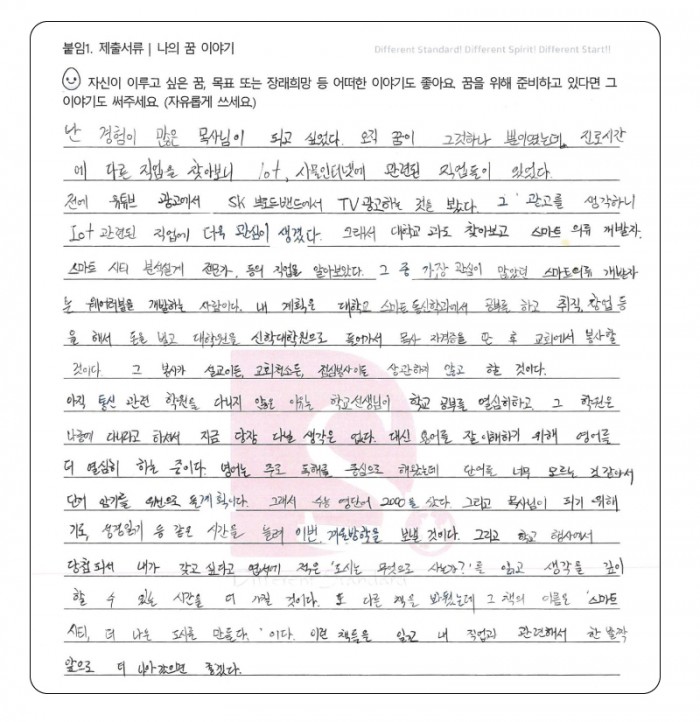 붙임1. 제출서류 | 나의 꿈 이야기
Different Standard! Different Spirit! Different Start!!
자신이 이루고 싶은 꿈, 목표 또는 장래희망 등 어떠한 이야기도 좋아요. 꿈을 위해 준비하고 있다면 그
이야기도 써주세요. (자유롭게 쓰세요.)
난 경험이 많은 목사님이 되고 싶었다. 오직 꿈이 그것하나 뿐이었는데, 진로시간
에 다른 직업을 찾아보니 Iot, 사물인터넷에 관련된 직업들이 있었다.
전에 유튜브 광고에서 SK 브로드밴드에서 TV광고하는 것을 봤다. 그 광고를 생각하니
Iot 관련된 직업에 더욱 관심이 생겼다. 그래서 대학교 과도 찾아보고 스마트 의류 개발자,
스마트 시티 분석설계 전문가, 등의 직업을 알아보았다. 그 중 가장 관심이 많았던 스마트의류 개발자
는 웨어러블을 개발하는 사람이다. 내 계획은 대학교 스마트통신학과에서 공부를 하고 취직, 창업 등
을 해서 돈을 벌고 대학원을 신학대학원으로 들어가서 목사 자격증을 딴 후 교회에서 봉사할
것이다. 그 봉사가 설교이든, 교회청소든, 점심봉사이든 상관하지 않고 할 것이다.
아직 통신 관련 학원을 다니지 않은 이유는 학교선생님이 학교 공부를 열심히하고, 그 학원은
나중에 다니라고 하셔서 지금 당장 다닐 생각은 없다. 대신 용어를 잘 이해하기 위해 영어를
더 열심히 하는 중이다. 영어는 주로 독해를 중심으로 해왔는데 단어를 너무 모르는 것 같아서
단어 암기를 위선으로 둘 계획이다. 그래서 수능 영단어 2000을 샀다. 그리고 목사님이 되기 위해
기도, 성경읽기 등 같은 시간을 늘려 이번 겨울방학을 보낼 것이다. 그리고 학교 행사에서
당첨되서 내가 갖고 싶다고 엽서에 적은 '도시는 무엇으로 사는가?'를 읽고 생각을 깊이
Different Standard
할 수 있는 시간을 더 가질 것이다. 또 다른 책을 봐왔는데 그 책의 이름은 '스마트
시티, 더 나은 도시를 만들다.'이다. 이런 책들을 읽고 내 직업과 관련해서 한 발짝
앞으로 더 나아갔으면 좋겠다.